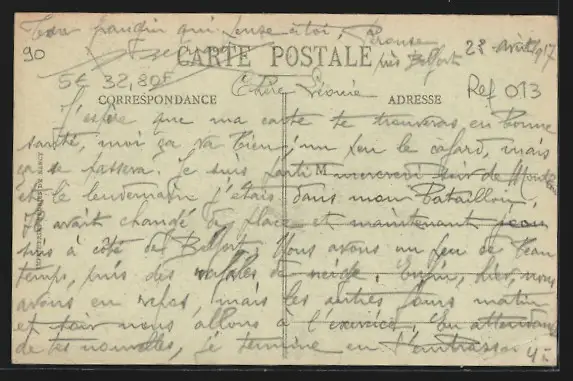 Ton frangin qui pense à toi, Pérouse
90 CARTE POSTALE près Belfort 28 avril 1917
5€ 32,80F Chère Léonie Ref 013
CORRESPONDANCE ADRESSE
J'espère que ma carte te trouveras en bonne
santé, moi ça va bien, un peu le cafard, mais
ça se passera. Je suis parti M mercredi soir de
et le lendemain j'étais dans mon Bataillon,
avait changé de place et maintenant je
suis à côté de Belfort. Nous avons un peu de beau
temps, puis des rafales de neige. Enfin, hier, nous
avons eu repos, mais les autres jours matin
et soir nous allons à l'exercice. En attendant
de tes nouvelles, je termine en t'embrassant